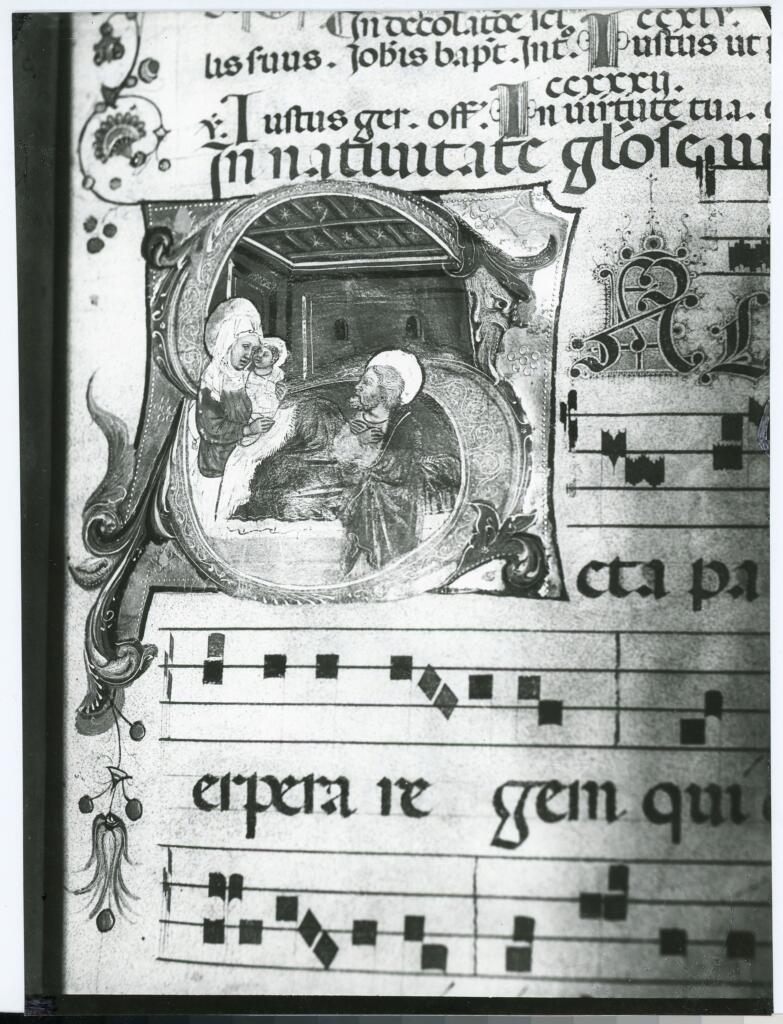 In decolatõe sci ccxlv.
lis suus. Johis bapt. Int. Iustus ut
ccxxxii.
℣. Iustus ger. off. In uirtute tua.
In natiuitate glose uir
S AL
cta pa
erpera re gem qui